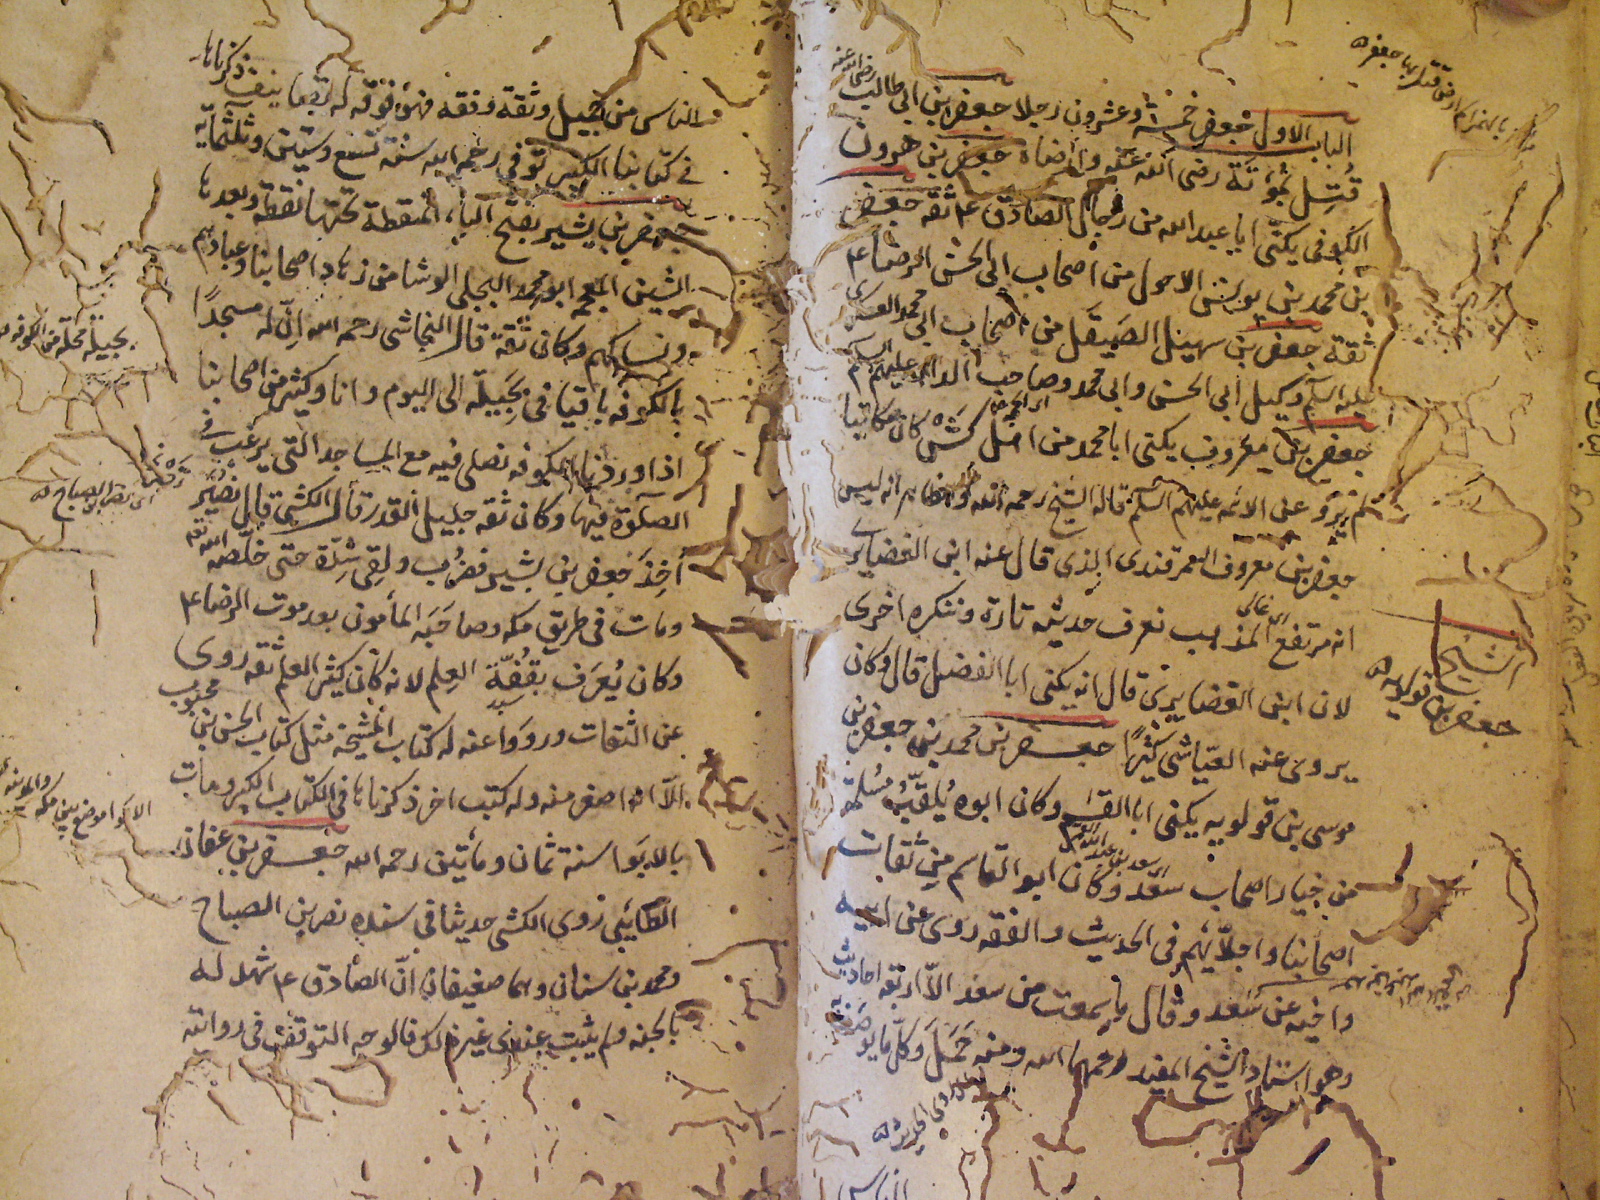 الباب الاول جعفر خمسة وعشرون رجلا جعفر بن ابي طالب رضي الله عنه
قُتِل بمؤتة رضى الله عنه وارضاه جعفر بن هرون
الكوفى يكنى ابا عبد الله من رجال الصادق ع ثقة جعفر
بن محمد بن يونس الاحول من اصحاب ابى الحسن الرضا ع
ثقة جعفر بن سهيل الصيقل من اصحاب ابى محمد العسكرى
عليه السلم وكيل أبى الحسن وابى محمد وصاحب الدار عليهم السلم
جعفر بن معروف يكنى ابا محمد من اهل كشّ كان مكاتبا
لم يرو عن الائمه عليهم السلم قاله الشيخ رحمه الله والظاهر انه ليس
جعفر بن معروف السمرقندى الذى قال عنه ابن الغضايرى
انه مرتفع المذهب نعرف حديثه تارة وننكره اخرى
لان ابن الغضايرى قال انه يكنى ابا الفضل قال وكان
يروى عنه العيّاشى كثيرًا جعفر بن محمد بن جعفر بن
موسى بن قولويه يكنى ابا القسم وكان ابوه يُلقّب مسلمة
من خيار اصحاب سعد وكان ابو القاسم من ثقات
اصحابنا واجلّائهم فى الحديث والفقه روى عن ابيه
واخيه عن سعد وقال ما سمعت من سعد الّا اربعة احاديث
وهو استاد الشيخ المفيد رحمهما الله ومنه حَمَلَ وكلّ ما يوصف به
الناس
الشيخ
جعفر بن قولويه
الناس من جميل وثقة وفقه فهو فوقه له تصانيف ذكرناها
في كتابنا الكبير توفى رحمه الله سنة تسع وستين وثلثمائة
جعفر بن بشير بفتح الباء المنقطة تحتها نقطة وبعدها
الشين المعجمه ابو محمد البجلى الوشا من زهاد اصحابنا وعبادهم
ونساكهم وكان ثقة قال النجاشى رحمه الله انّ له مسجدًا
بالكوفه باقيا فى بجيلة الى اليوم وانا وكثير من اصحابنا
اذا وردنا الكوفه نصلى فيه مع المساجد التى يرغب فى
الصلوة فيها وكان ثقه جليل القدر قال الكشى قال نصر
أُخِذَ جعفر بن بشير فضُرب ولقى شِدّة حتى خلّصه الله
ومات فى طريق مكه وصاحَبَه المأمون بعد موت الرضا ع
وكان يُعرَف بقُفّة العِلم لانه كان كثير العلم ثقه روى
عن الثقات ورووا عنه له كتاب المشيخة مثل كتاب الحسن بن محبوب
الّا انه اصغر منه وله كتب اخر ذكرناها فى الكتاب الكبير ومات
بالابوا سنة ثمان ومأتين رحمه الله جعفر بن عفان
الطايى روى الكشى حديثا فى سنده نصر بن الصباح
ومحمد بن سنان وهما ضعيفان انّ الصادق ع شهد له
بالجنه ولم يثبت عندى غير ذلك فالوجه التوقف فى روايته
بجيلة محلة من الكوفه
الابوا موضع بين مكه والمدينه